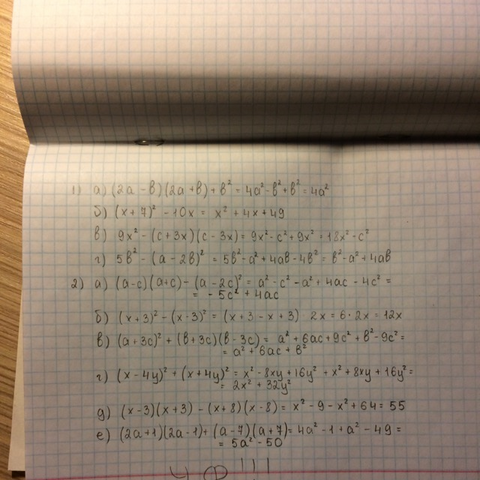 1) а) (2a - b)(2a + b) + b² = 4a² - b² + b² = 4a²
б) (x + 7)² - 10x = x² + 4x + 49
в) 9x² - (c + 3x)(c - 3x) = 9x² - c² + 9x² = 18x² - c²
г) 5b² - (a - 2b)² = 5b² - a² + 4ab - 4b² = b² - a² + 4ab
2) а) (a - c)(a + c) - (a - 2c)² = a² - c² - a² + 4ac - 4c² =
= - 5c² + 4ac
б) (x + 3)² - (x - 3)² = (x + 3 - x + 3) 2x = 6 · 2x = 12x
в) (a + 3c)² + (b + 3c)(b - 3c) = a² + 6ac + 9c² + b² - 9c² =
= a² + 6ac + b²
г) (x - 4y)² + (x + 4y)² = x² - 8xy + 16y² + x² + 8xy + 16y² =
= 2x² + 32y²
д) (x - 3)(x + 3) - (x + 8)(x - 8) = x² - 9 - x² + 64 = 55
е) (2a + 1)(2a - 1) + (a - 7)(a + 7) = 4a² - 1 + a² - 49 =
= 5a² - 50